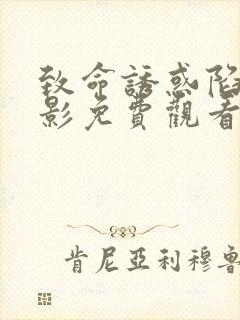 致命誘惑陷
影免費觀看
肯尼亞利穆魯